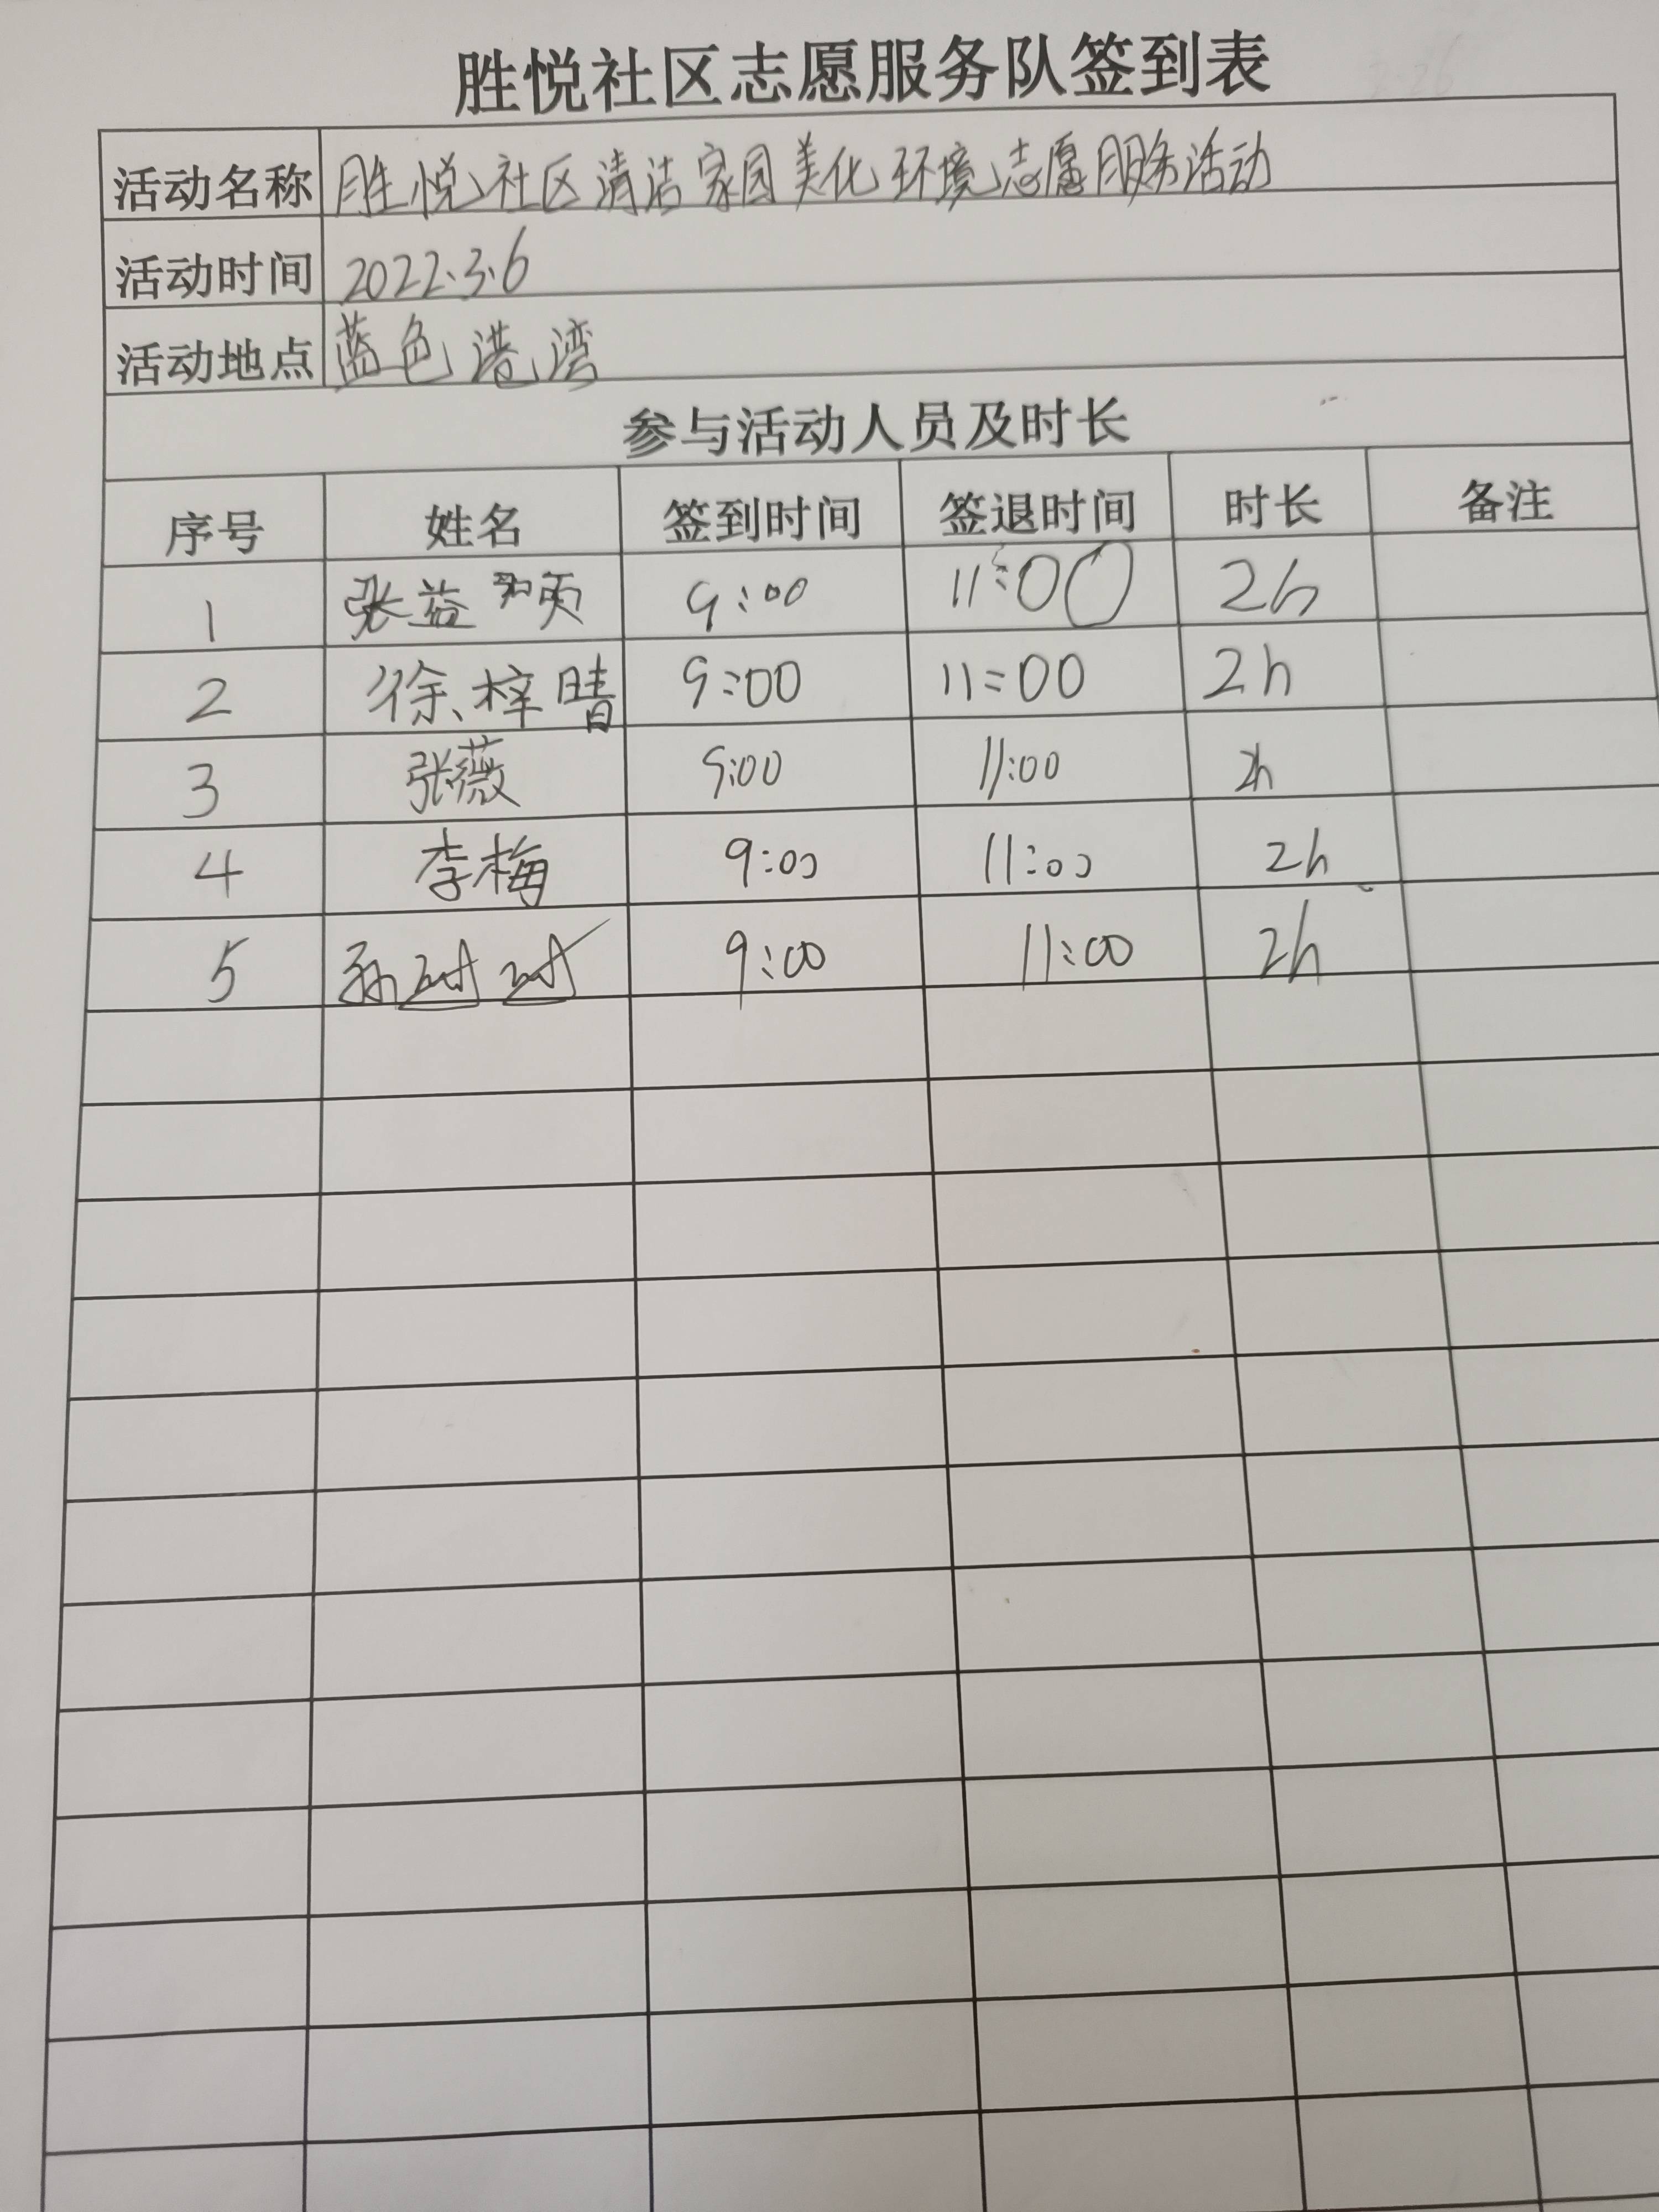 胜悦社区志愿服务队签到表
活动名称 胜悦社区清洁家园美化环境志愿服务活动
活动时间 2022.3.6
活动地点 蓝色港湾
参与活动人员及时长
序号 姓名 签到时间 签退时间 时长 备注
1 张益硕 9:00 11:00 2h
2 徐梓晴 9:00 11:00 2h
3 张薇 9:00 11:00 2h
4 李梅 9:00 11:00 2h
5 孙 9:00 11:00 2h